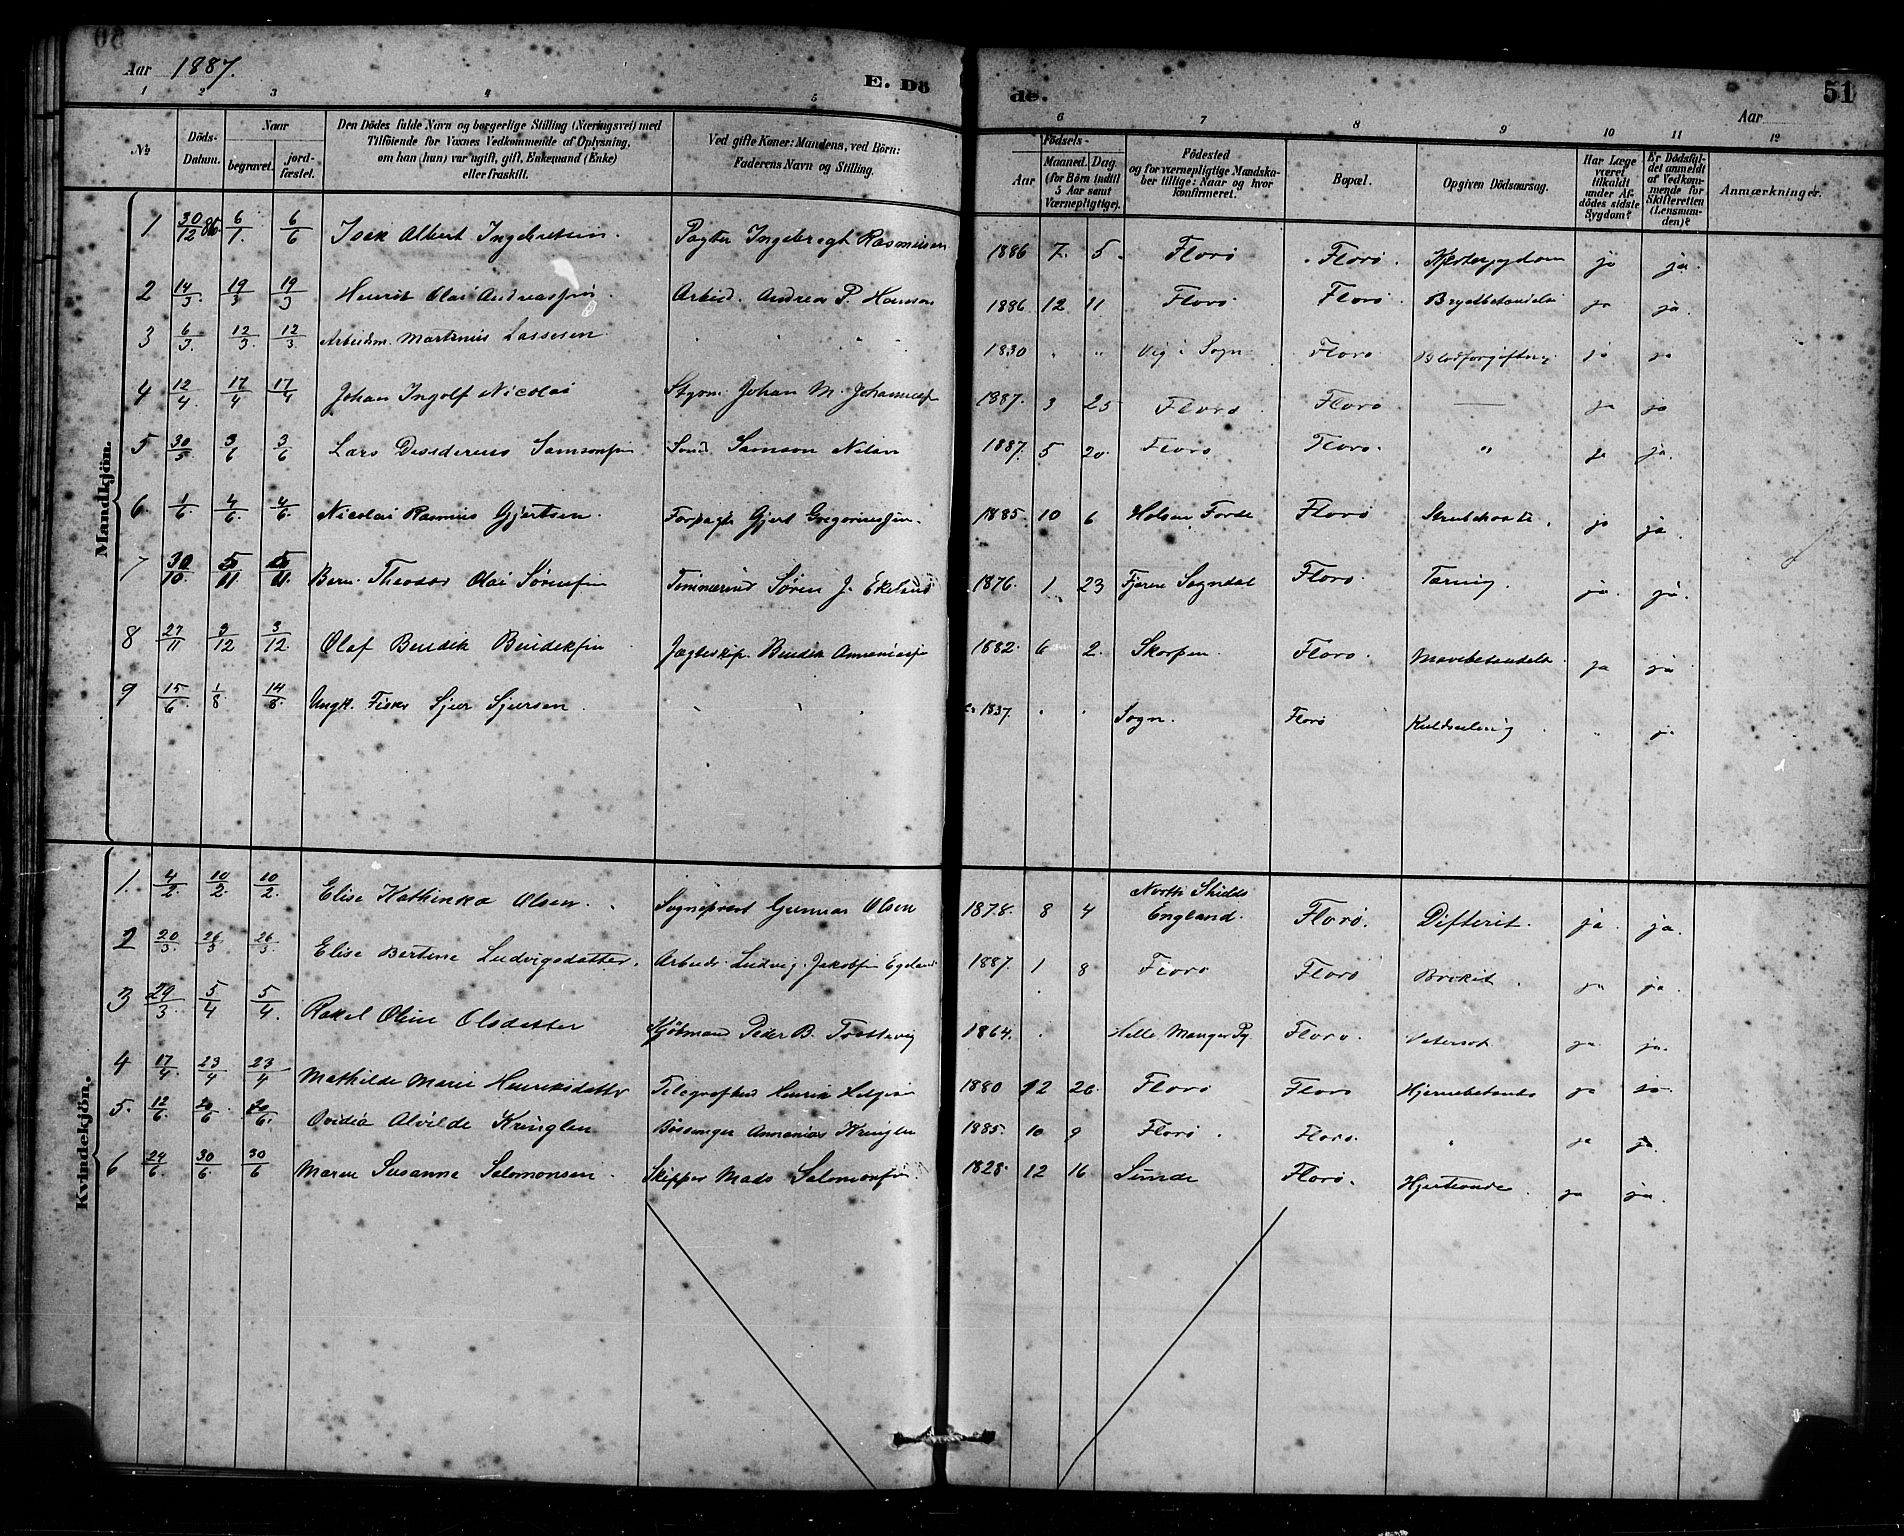 Aar 1887.
E. Dö
de.
Aar
51
1 2 3 4 5 6 7 8 9 10 11 12
№
Döds-Datum.
Naar
begravet.
jord-fæstet.
Den Dödes fulde Navn og borgerlige Stilling (Næringsvei) med
Tilföiende for Voxnes Vedkommende af Oplysning,
om han (hun) var ugift, gift, Enkemand (Enke)
eller fraskilt.
Ved gifte Koner: Mandens, ved Börn:
Faderens Navn og Stilling.
Födsels-
Aar
Maaned. Dag
(for Börn indtil
5 Aar samt
Værnepligtige).
Födested
og for værnepligtige Mandska-
ber tillige: Naar og hvor
konfirmeret.
Bopæl.
Opgiven Dödsaarsag.
Har Læge
været
tilkaldt
under Af-
dödes sidste
Sygdom?
Er Dödsfal-
det anmeldt
af Vedkom-
mende for
Skifteretten
(Lensman-
den)?
Anmærkninger.
Mandkjön.
1 30/12 86 6/1 6/6 Isak Albert Ingebretsen. Pagter Ingebregt Rasmussen 1886 7. 5. Florö Florö. ja ja.
2 14/3. 19/3 19/3 Henrik Olai Andreassen Arbeid. Andreas P. Hansen 1886 12 11 Florö. Florö. Brystbetændelse ja ja.
3 6/3. 12/3. 12/3 Arbeidsm. Martinus Lassesen " " " 1830 " " Vig i Sogn Florö Blodforgiftning ja ja
4 12/4. 17/4 17/4 Johan Ingolf Nicolai Styrm. Johan M. 1887. 3 25 Florö. Florö — ja ja
5 30/5 3/6 3/6 Lars Desiderius Samsonsen Samson Nilsen 1887. 5 20. Florö Florö. " ja ja.
6. 1/6. 4/6. 4/6. Nicolai Rasmus Gjertsen. Forpagt Gjert 1885. 10 6 Holsen Förde Florö Strubehoste. ja ja
7 30/10. 5/11 5/11. Bern. Theodor Olai Sörensen Tömmermd Sören J. Ekeland 1876. 1 23 Sogndal Florö. Tæring. ja. ja.
8 27/11 3/12 3/12. Olaf Bendik Bendiksen Jagteskip. Bendik 1882. 6 2. Skorpen. Florö. Mavebetændelse ja ja
9 15/6. 1/8 14/8. Ungk. Fisker Sjur Sjursen. " " " 1837. " " Sogn. Florö " ja
Kvindekjön.
1. 4/2. 10/2. 10/2. Elise Kathinka Olsen. Sogneprest Gunnar Olsen 1878. 8 4 North Shields England. Florö. Difterit. ja ja.
2 20/3. 26/3 26/3. Elise Bertine Ludvigsdatter. Arbeidr. Ludvig Jakobsen Egeland 1887. 1 8 Florö Florö Brokit. ja ja.
3 29/3. 5/4 5/4. Rakel Oline Olsdatter Kjöbmand Peder B. 1864. Helle Manger Pg. Florö. ja. ja.
4 17/4. 23/4 23/4 Mathilde Marie Henriksdatter Henrik 1880 12 26. Florö Florö ja ja
5. 12/6. 20/6 20/6. Ovidia Alvilde Kringlen Annanias Kringlen 1885. 10 9 Florö. Florö. " ja ja
6 24/6 30/6. 30/6 Maren Susanne Salomonsen. Skipper Mads Salomonsen. 1828. 12 16 Sunde Florö. ja ja.